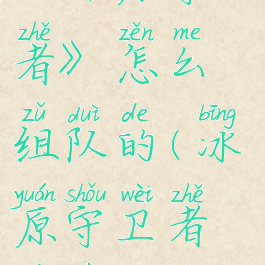 zhě zěn me
者》怎么
zǔ duì de bīng
组队的(冰
yuán shǒu wèi zhě
原守卫者